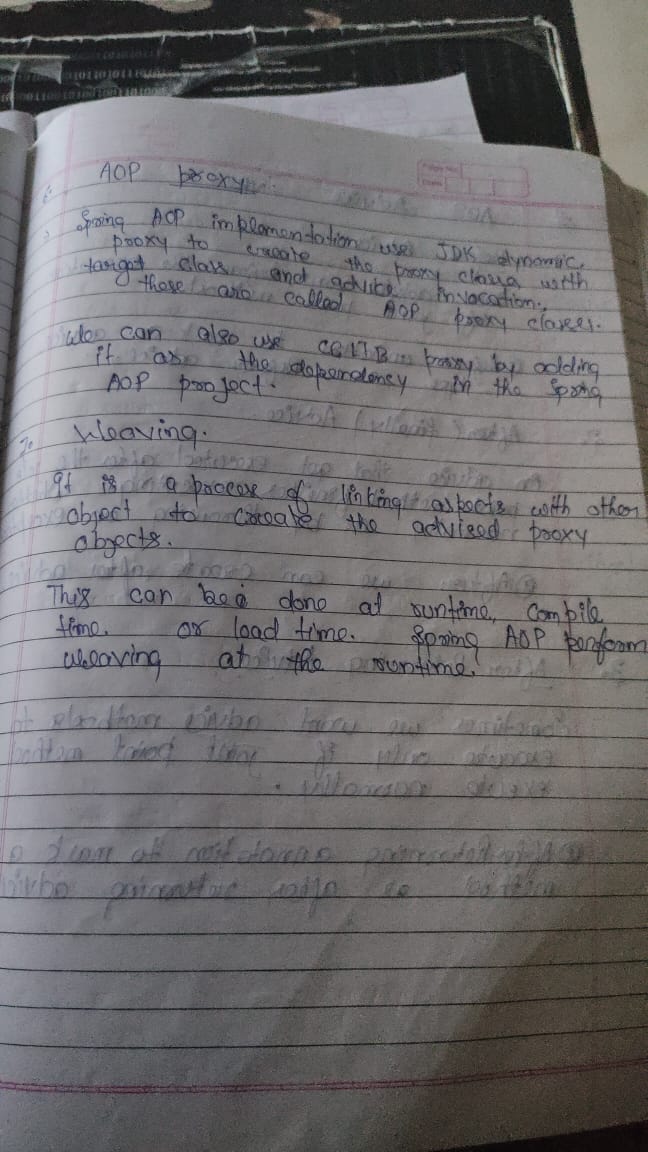 AOP proxy:
Spring AOP implementation uses JDK dynamic
proxy to create the proxy classes with
target class and advice invocation,
these are called AOP proxy classes.
We can also use CGLIB proxy by adding
it as the dependency in the Spring
AOP project.
7. Weaving.
It is a process of linking aspects with other
object to create the advised proxy
objects.
This can be done at runtime, compile
time. or load time. Spring AOP perform
weaving at the runtime.